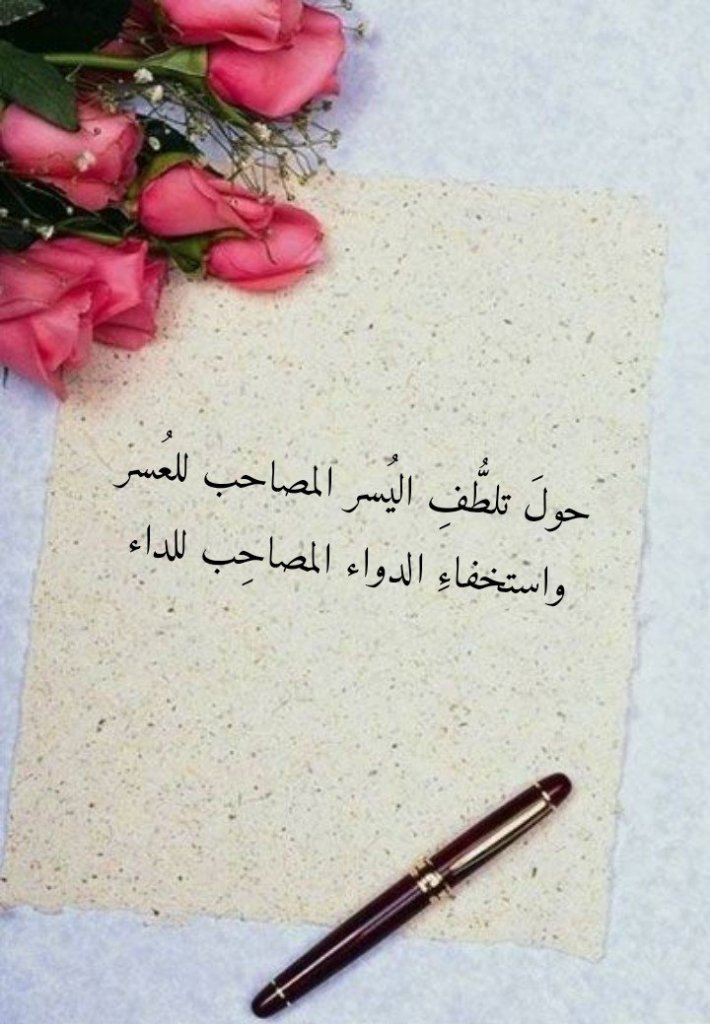 حولَ تلطُّفِ اليُسر المصاحب للعُسر
واستخفاءِ الدواء المصاحِب للداء